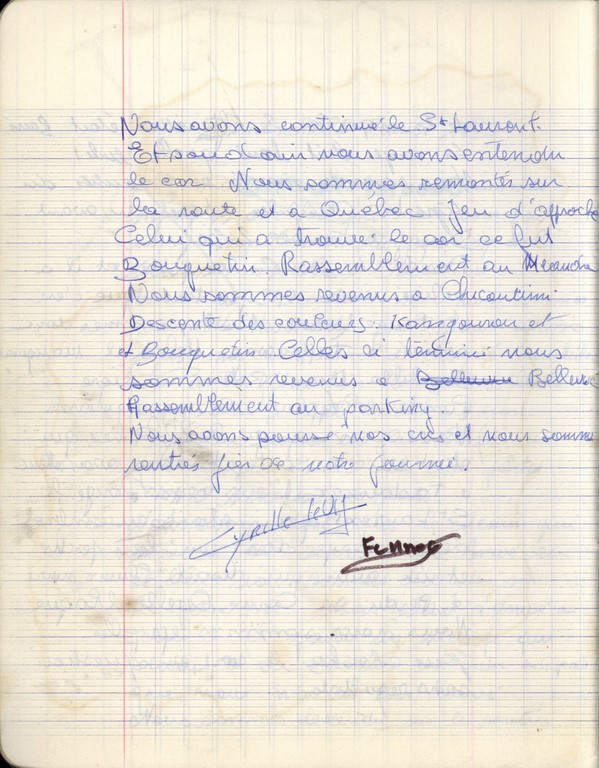 Nous avons continué le St Laurent.
Et soudain nous avons entendu
le cor. Nous sommes remontés sur
la route et à Québec Jeu d'approche
Celui qui a trouvé le cor ce fut
Bouquetin. Rassemblement au
Nous sommes revenus a Chicoutimi
Descente des couleurs. Kangourou et
et Bouquetin. Celles ci terminé nous
sommes revenus a Bellevue
Rassemblement au parking.
Nous avons poussé nos cris et nous somme
rentrés fier de notre journée.
Cyrille
Fennec